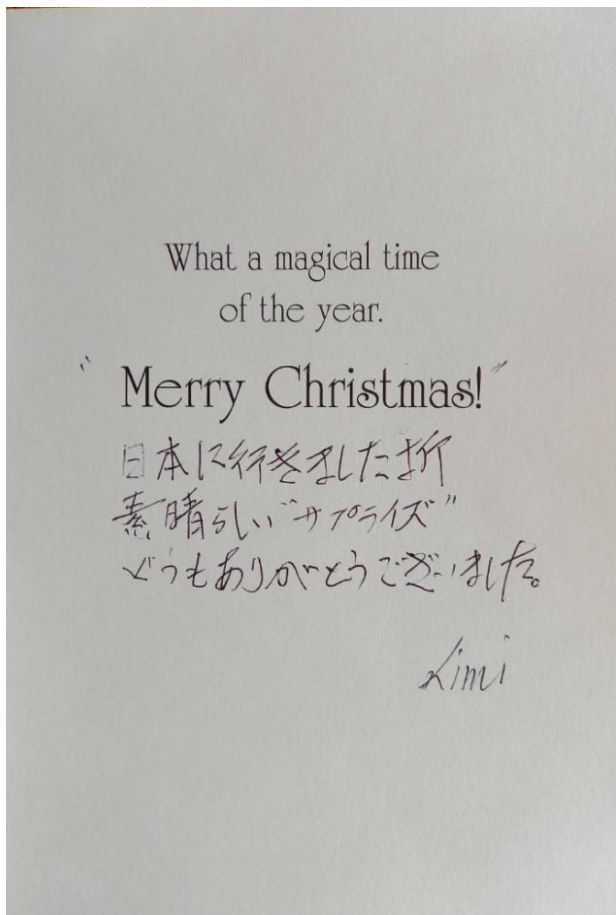 What a magical time
of the year.
"Merry Christmas!"
日本に行きました折
素晴らしい"サプライズ"
どうもありがとうございました。
Kimi